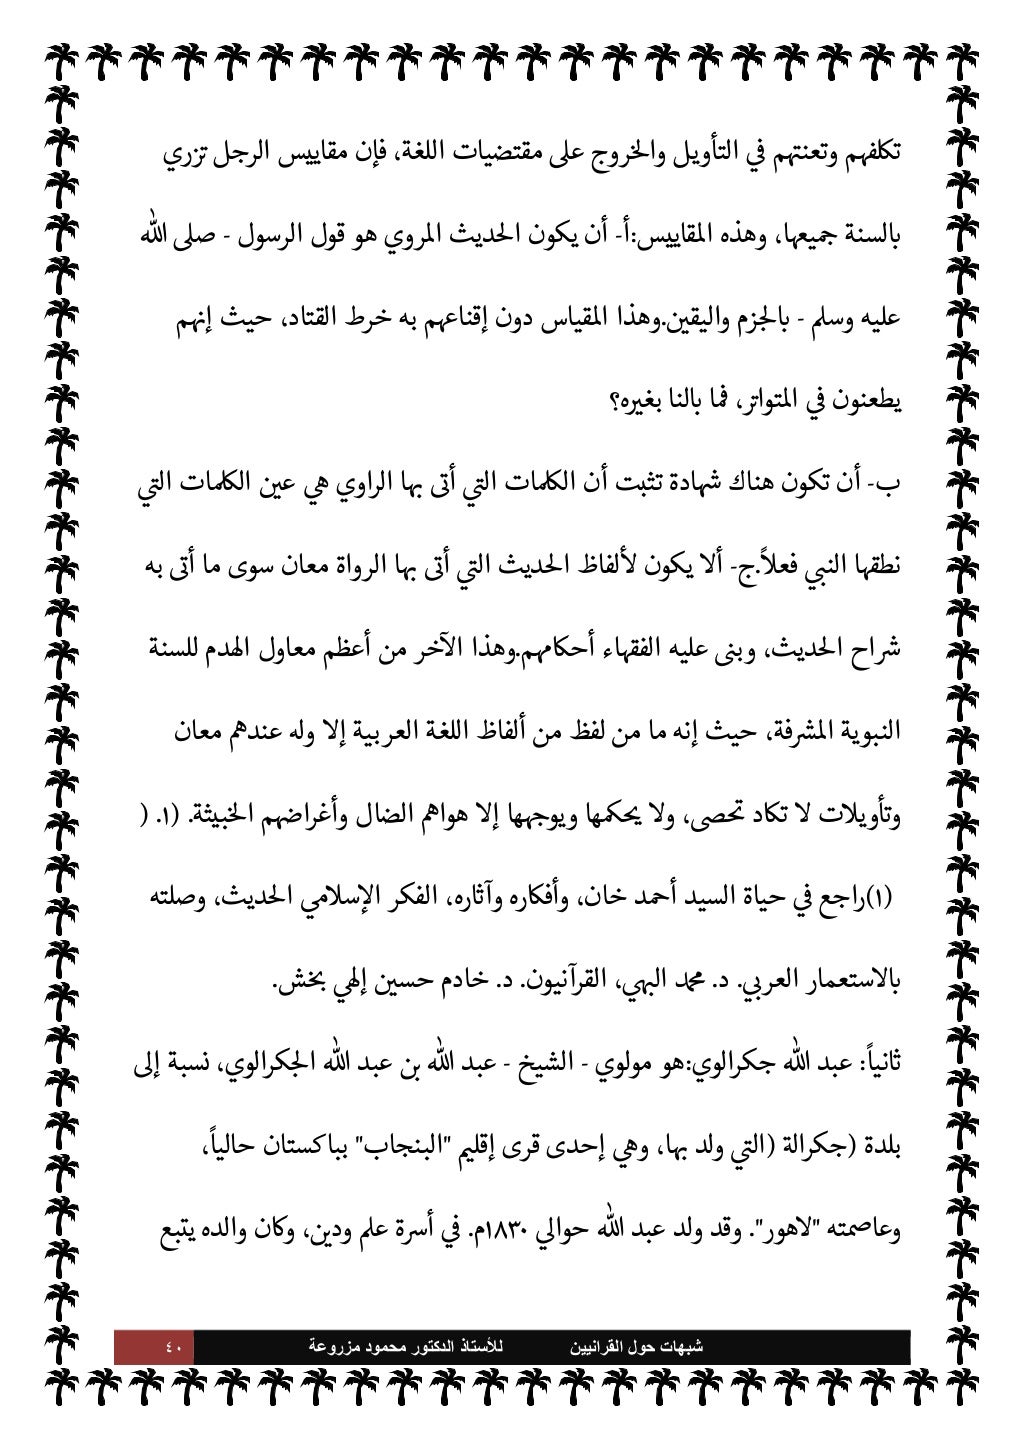 تكلفهم وتعنتهم في التأويل والخروج على مقتضيات اللغة، فإن مقاييس الرجل تزري
بالسنة جميعها، وهذه المقاييس:أ- أن يكون الحديث المروي هو قول الرسول - صلى الله
عليه وسلم - بالجزم واليقين.وهذا المقياس دون إقناعهم به خرط القتاد، حيث إنهم
يطعنون في المتواتر، فما بالنا بغيره؟
ب- أن تكون هناك شهادة تثبت أن الكلمات التي أتى بها الراوي هي عين الكلمات التي
نطقها النبي فعلاً.ج- ألا يكون لألفاظ الحديث التي أتى بها الرواة معان سوى ما أتى به
شراح الحديث، وبنى عليه الفقهاء أحكامهم.وهذا الآخر من أعظم معاول الهدم للسنة
النبوية المشرفة، حيث إنه ما من لفظ من ألفاظ اللغة العربية إلا وله عندهم معان
وتأويلات لا تكاد تحصى، ولا يحكمها ويوجهها إلا هواهم الضال وأغراضهم الخبيثة. (١. (
(١)راجع في حياة السيد أحمد خان، وأفكاره وآثاره، الفكر الإسلامي الحديث، وصلته
بالاستعمار العربي. د. محمد البهي، القرآنيون. د. خادم حسين إلهي بخش.
ثانياً: عبد الله جكرالوي:هو مولوي - الشيخ - عبد الله بن عبد الله الجكرالوي، نسبة إلى
بلدة (جكرالة (التي ولد بها، وهي إحدى قرى إقليم "البنجاب" بباكستان حالياً،
وعاصمته "لاهور". وقد ولد عبد الله حوالي ١٨٣٠م. في أسرة علم ودين، وكان والده يتبع
شبهات حول القرانيين للأستاذ الدكتور محمود مزروعة ٤٠